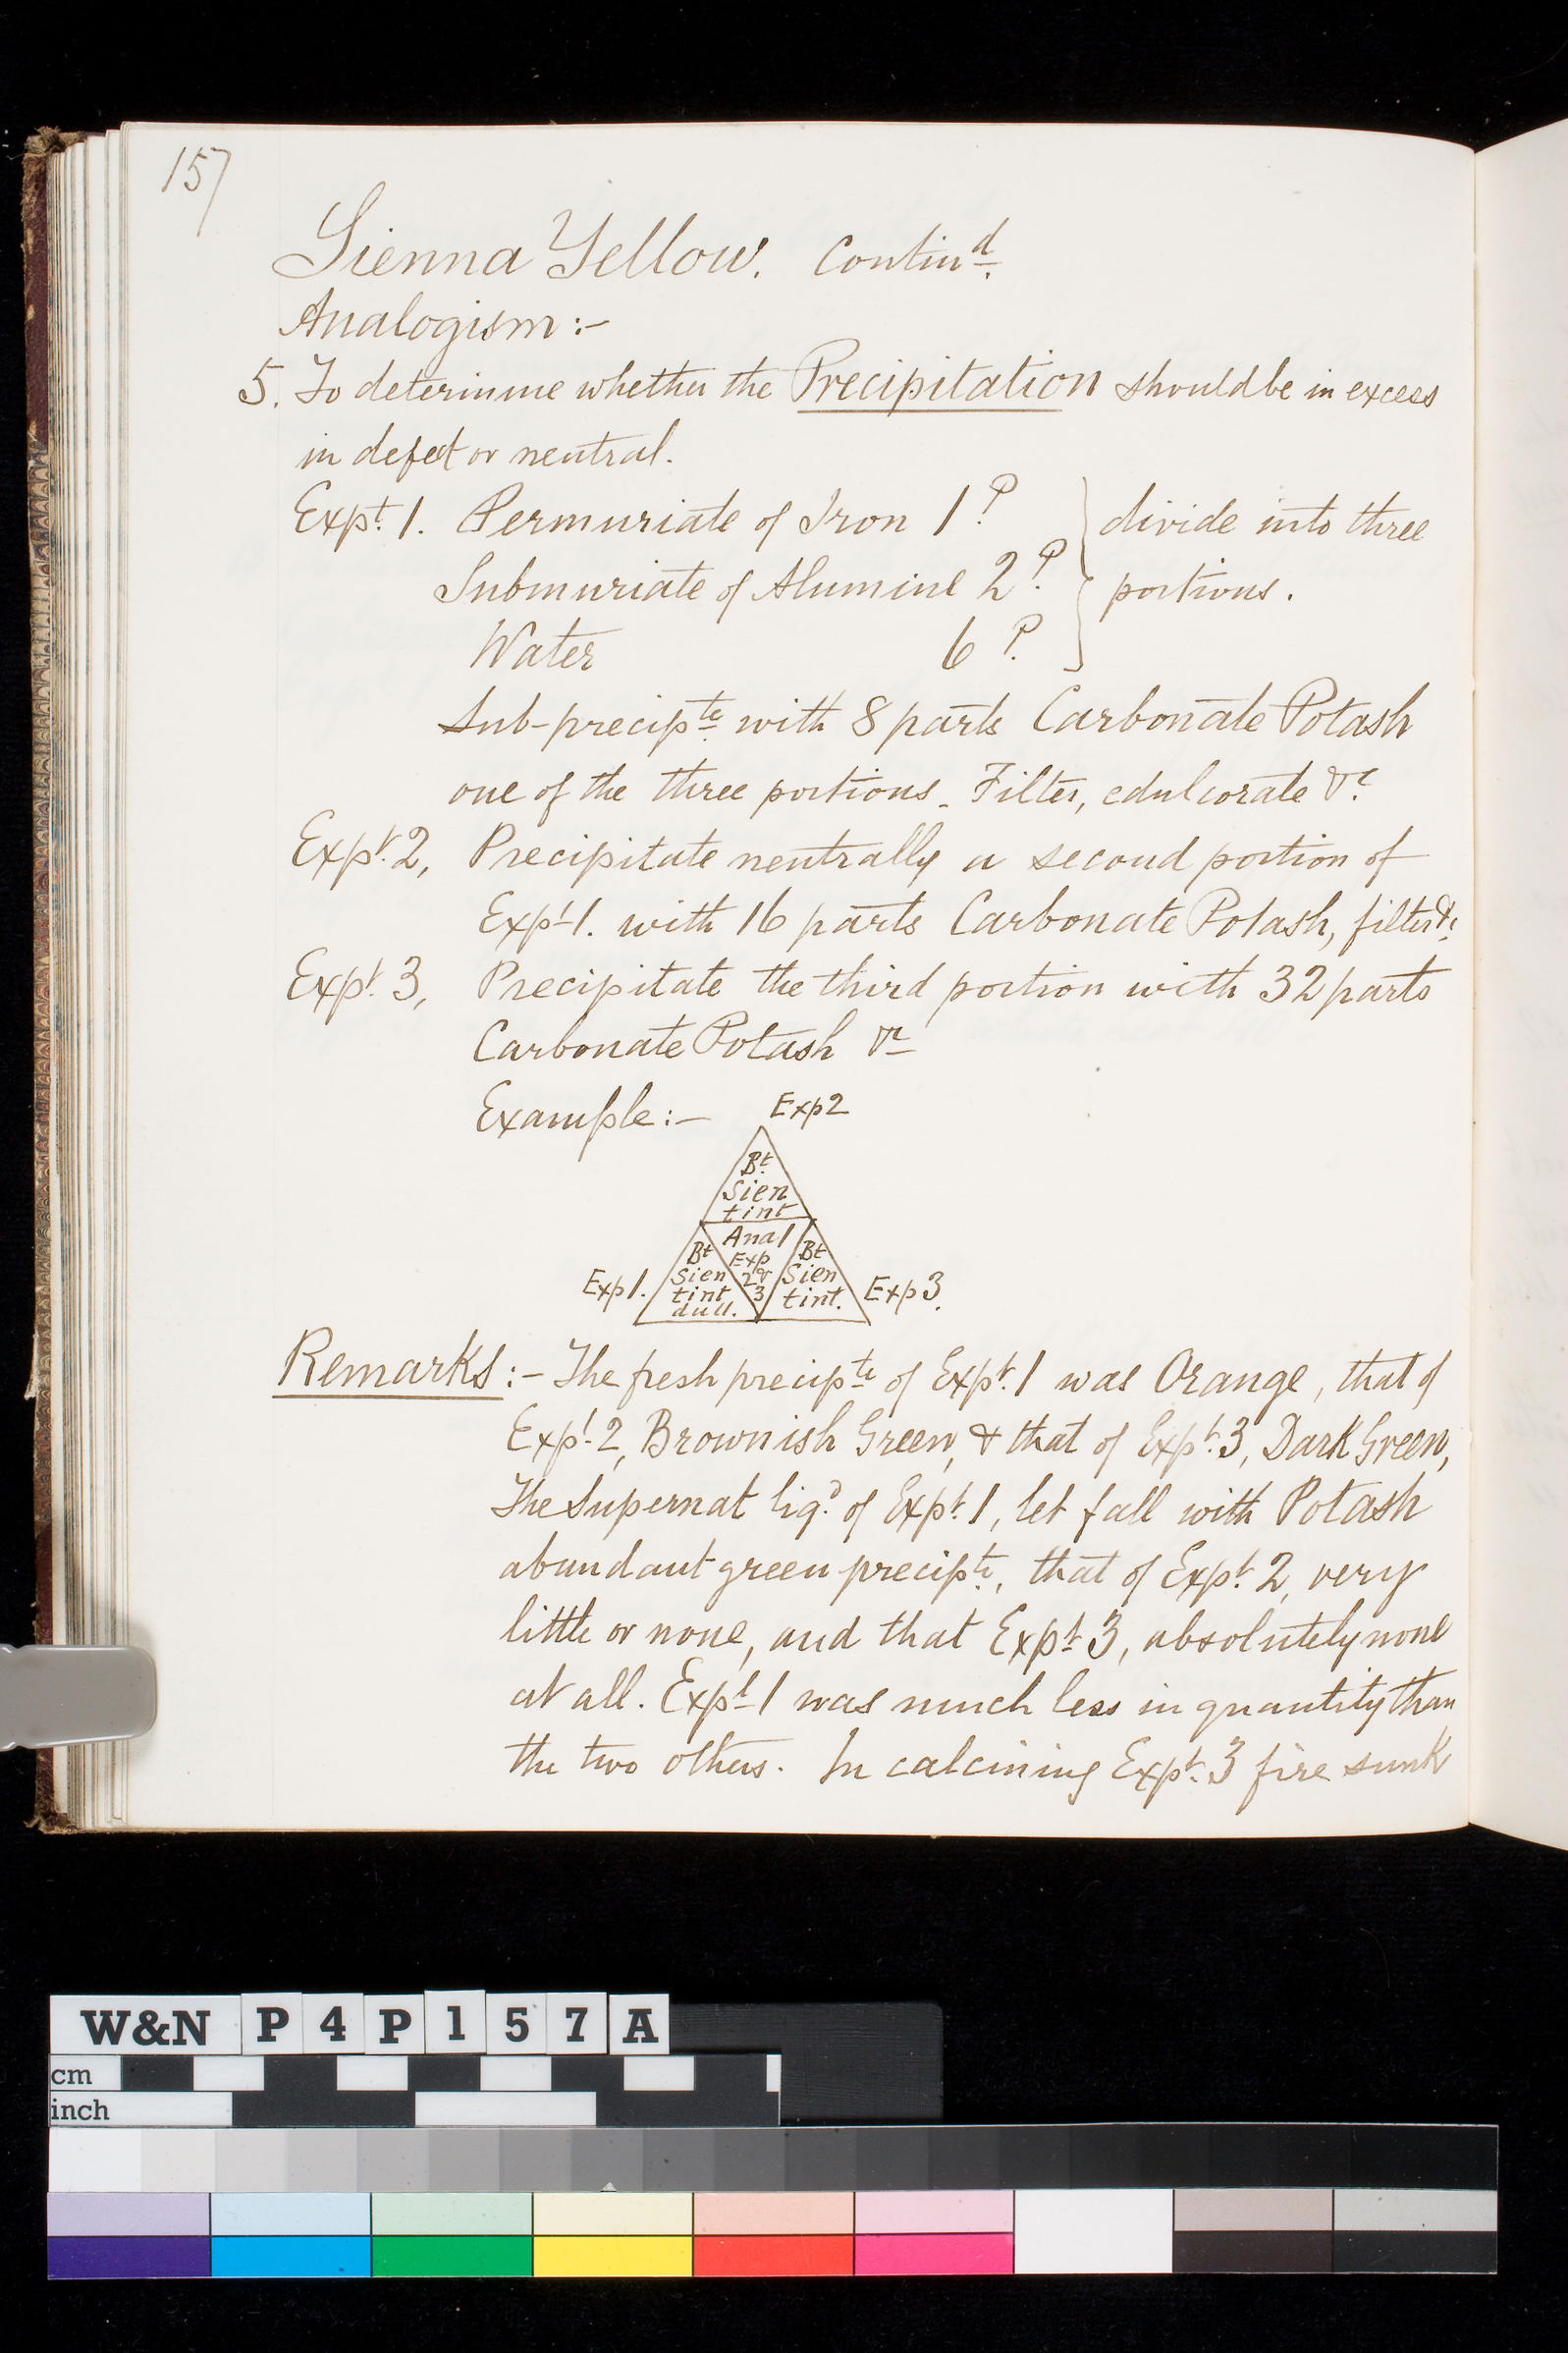 157
Sienna Yellow. Contind.
Analogism:-
5. To determine whether the Precipitation should be in excess
in defect or neutral.
Expt. 1. Permuriate of Iron 1 P. divide into three
Submuriate of Alumine 2 P. portions.
Water 6 P.
Sub-precipte. with 8 parts Carbonate Potash
one of the three portions. Filter, edulcorate &c.
Expt. 2, Precipitate neutrally a second portion of
Expt 1. with 16 parts Carbonate Potash, filter &c.
Expt. 3, Precipitate the third portion with 32 parts
Carbonate Potash &c
Example:-
Exp 2
Bt.
Sien
tint
Anal
Exp
2 &
3
Exp 1.
Bt
Sien
tint
dull.
Bt
Sien
tint.
Exp 3.
Remarks:- The fresh precipte of Expt. 1 was Orange, that of
Expt. 2, Brownish Green, & that of Expt. 3, Dark Green,
The Supernat liqd. of Expt. 1, let fall with Potash
abundant green precipte., that of Expt. 2, very
little or none, and that Expt 3, absolutely none
at all. Expt 1 was much less in quantity than
the two others. In calcining Expt. 3 fire sunk
W&N P4P157A
cm
inch